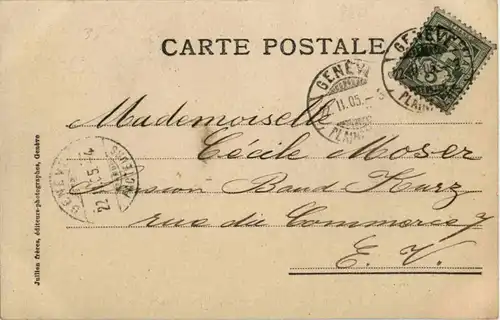 CARTE POSTALE
Mademoiselle
Cécile Moser
Pension Baud Kurz
rue du Commerce 7
E. V.
Jullien frères, éditeurs-photographes, Genève
GENÈVE
11.05.
PLAIN
GENÈVE
PLAIN
GENÈVE
22
5